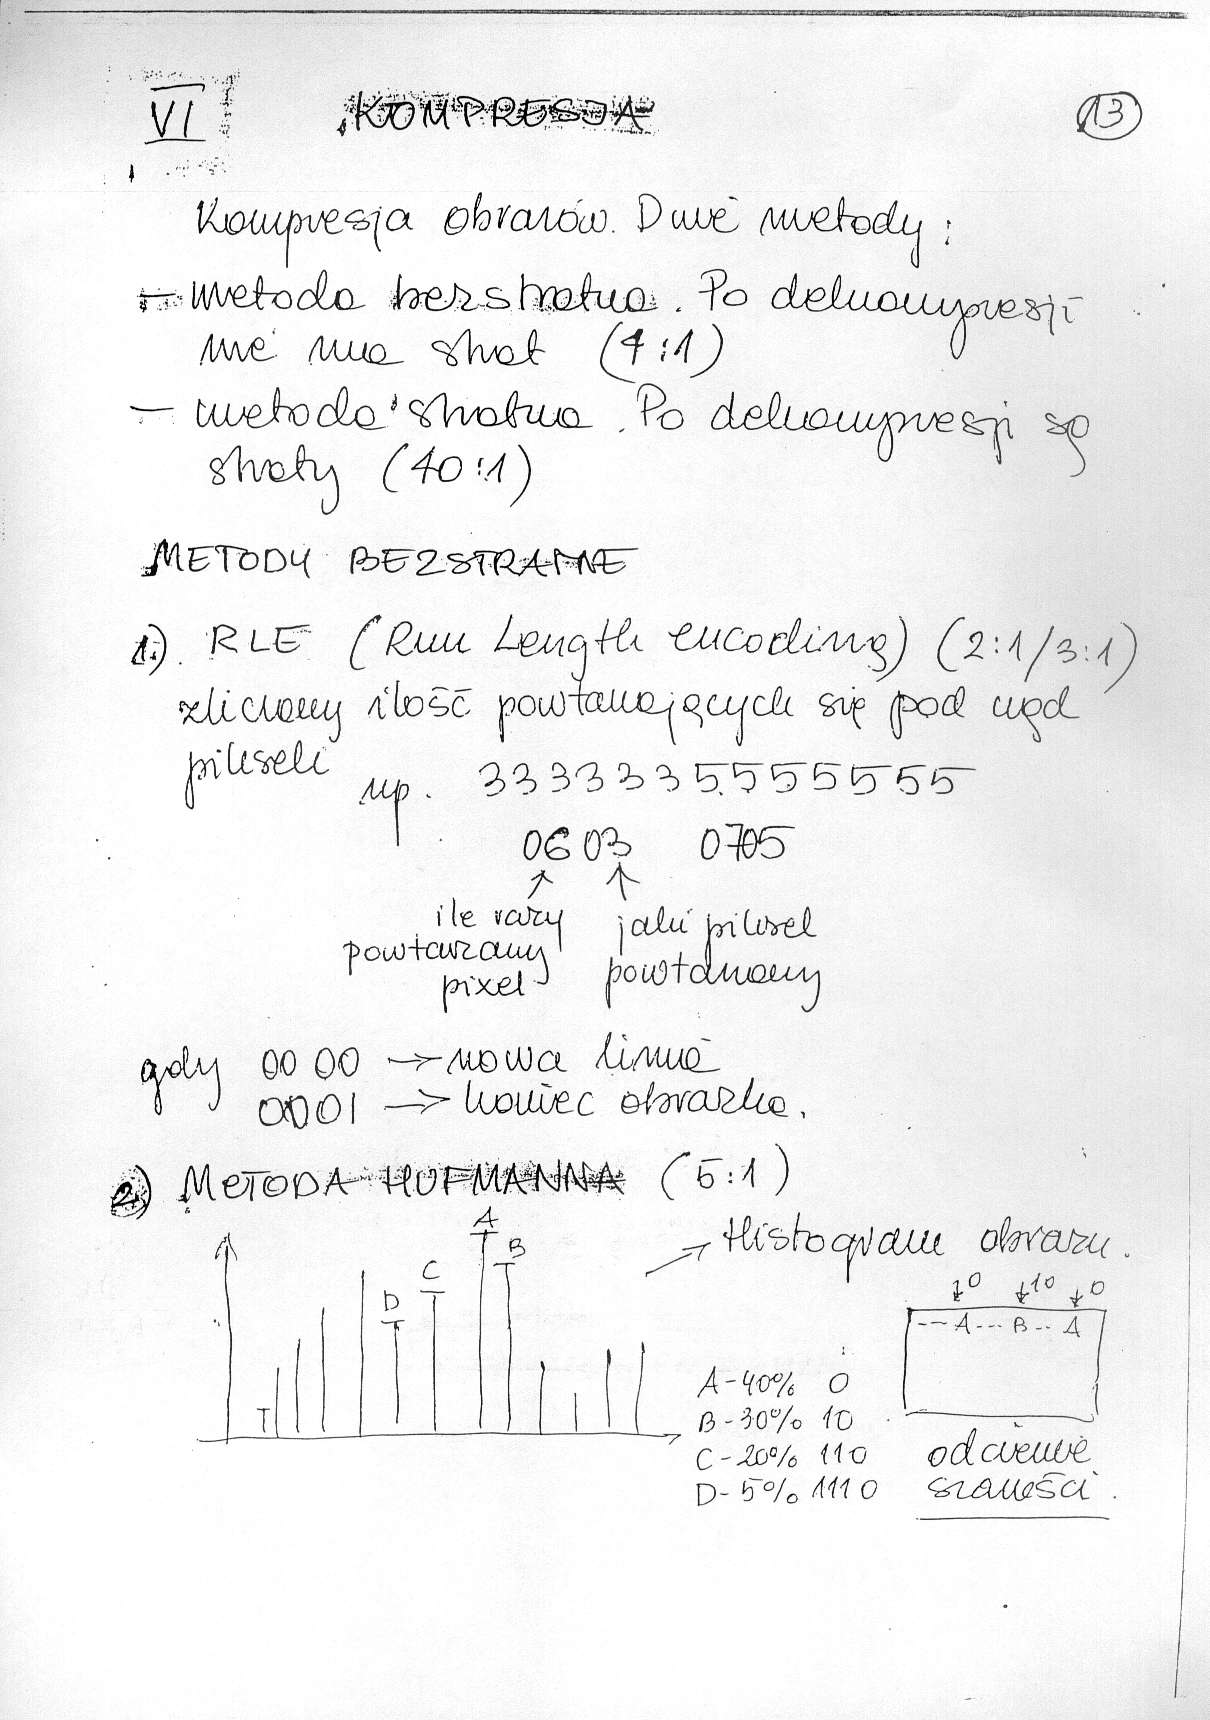 VI KOMPRESJA 13
Kompresja obrazów. Dwie metody:
– metoda bezstratna. Po dekompresji
nie ma strat (4:1)
– metoda stratna. Po dekompresji są
straty (40:1)
METODY BEZSTRATNE
1.) RLE (Run Length encoding) (2:1/3:1)
zliczamy ilość powtarzających się pod rząd
pikseli
np. 3333335555555
06 03 0705
ile razy
powtarzany
pixel
jaki piksel
powtarzany
gdy 00 00 → nowa linia
0001 → koniec obrazka.
2) METODA HUFMANNA (5:1)
→ Histogram obrazu.
A
B
C
D
↓0 ↓10 ↓0
--- A --- B -- A
A-40% 0
B-30% 10
C-20% 110
D-5% 1110
odcienie
szarości.